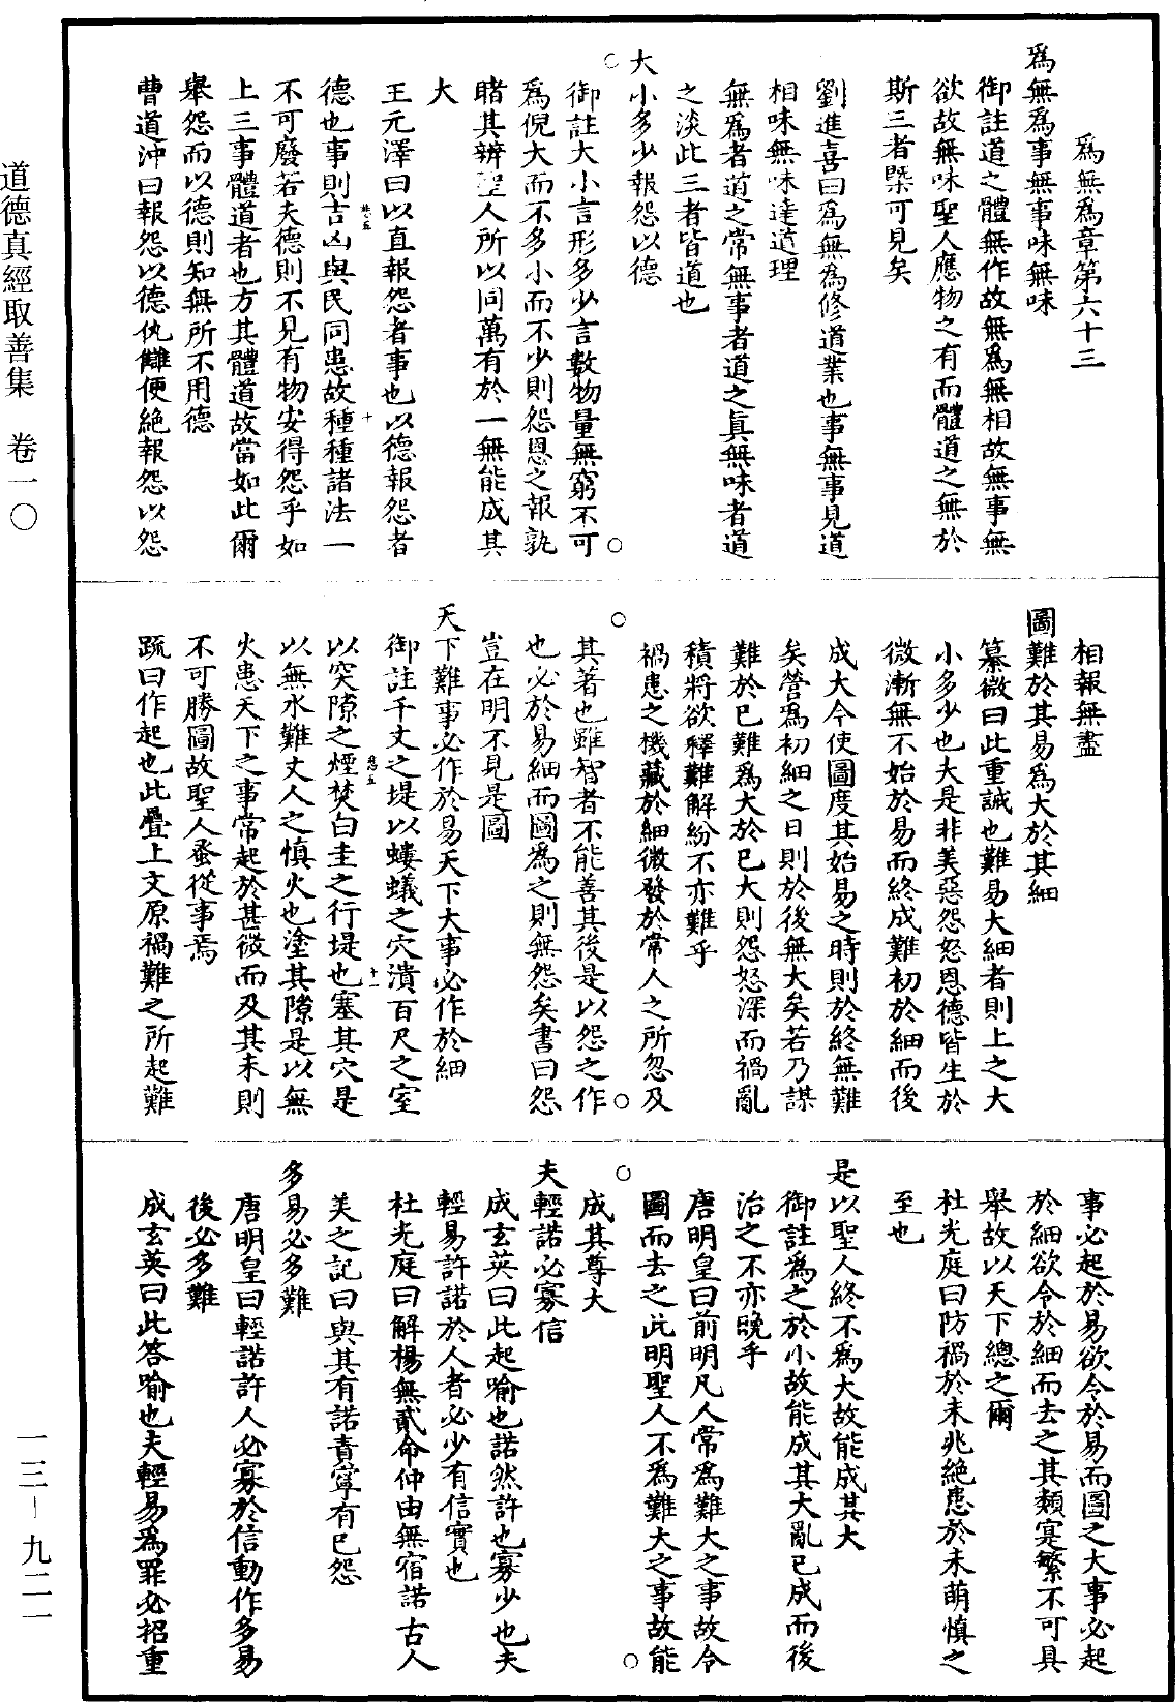 爲無爲章第六十三
爲無爲事無事味無味
御註道之體無作故無爲無相故無事無
欲故無味聖人應物之有而體道之無於
斯三者槩可見矣
劉進喜曰爲無為修道業也事無事見道
相味無味達道理
無爲者道之常無事者道之真無味者道
之淡此三者皆道也
大小多少報怨以德
御註大小言形多少言數物量無窮不可
為倪大而不多小而不少則怨恩之報孰
睹其辨聖人所以同萬有於一無能成其
大
王元澤曰以直報怨者事也以德報怨者
德也事則吉凶與民同患故種種諸法一
不可廢若夫德則不見有物安得怨乎如
上三事體道者也方其體道故當如此爾
舉怨而以德則知無所不用德
曹道沖曰報怨以德仇讎便絕報怨以怨
相報無盡
圖難於其易爲大於其細
纂微曰此重誡也難易大細者則上之大
小多少也夫是非美惡怨怒恩德皆生於
微漸無不始於易而終成難初於細而後
成大今使圖度其始易之時則於終無難
矣營爲初細之日則於後無大矣若乃謀
難於已難爲大於已大則怨怒深而禍亂
積將欲釋難解紛不亦難乎
禍患之機藏於細微發於常人之所忽及
其著也雖智者不能善其後是以怨之作
也必於易細而圖為之則無怨矣書曰怨
豈在明不見是圖
天下難事必作於易天下大事必作於細
御註千丈之堤以螻蟻之穴潰百尺之室
以突隙之煙焚白圭之行堤也塞其穴是
以無水難丈人之慎火也塗其隙是以無
火患天下之事常起於甚微而及其末則
不可勝圖故聖人蚤從事焉
疏曰作起也此疊上文原禍難之所起難
事必起於易欲令於易而圖之大事必起
於細欲令於細而去之其類寔繁不可具
舉故以天下總之爾
杜光庭曰防禍於未兆絕患於未萌慎之
至也
是以聖人終不爲大故能成其大
御註爲之於小故能成其大亂已成而後
治之不亦晚乎
唐明皇曰前明凡人常爲難大之事故令
圖而去之此明聖人不爲難大之事故能
成其尊大
夫輕諾必寡信
成玄英曰此起喻也諾然許也寡少也夫
輕易許諾於人者必少有信實也
杜光庭曰解楊無貳命仲由無宿諾古人
美之記曰與其有諾責寧有已怨
多易必多難
唐明皇曰輕諾許人必寡於信動作多易
後必多難
成玄英曰此答喻也夫輕易爲罪必招重
道德真經取善集　卷一〇
一三－九二一